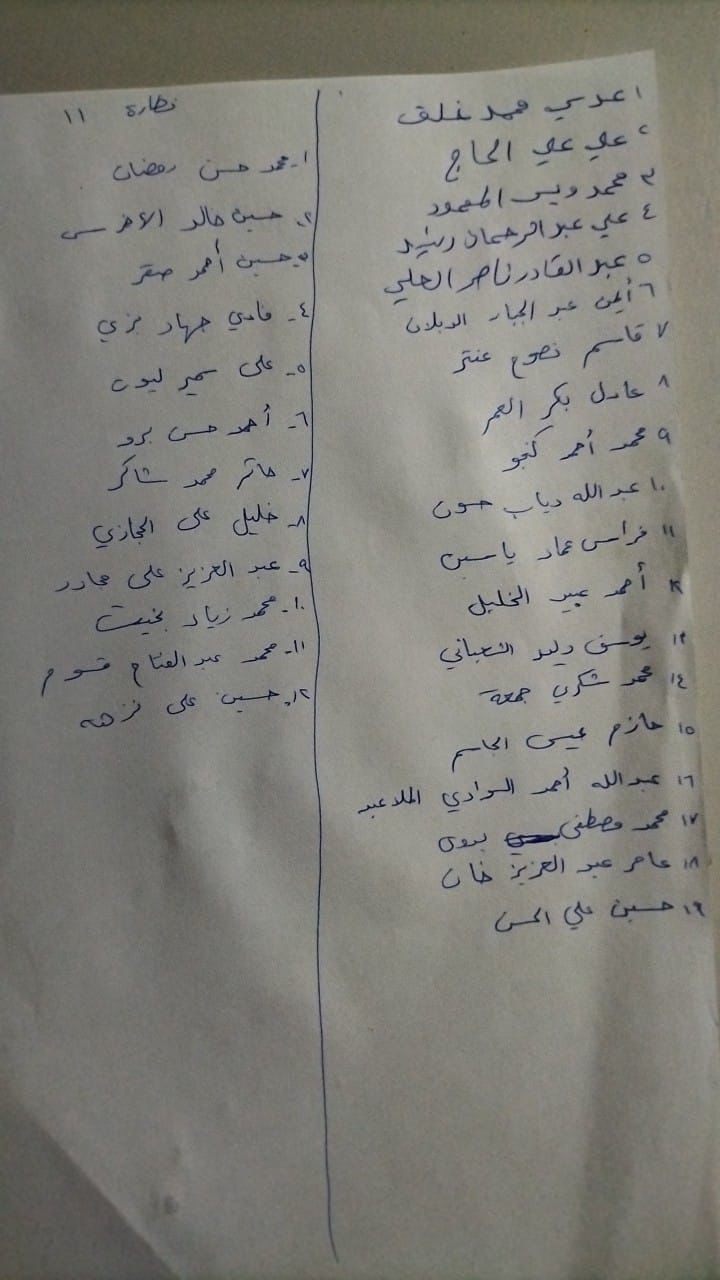 ١ عدي محمد خلف
٢ علي علي الحاج
٣ محمد ويس المحمود
٤ علي عبد الرحمان رشيد
٥ عبد القادر ناصر العلي
٦ أيمن عبد الجبار الدبلان
٧ قاسم نصوح عنتر
٨ عادل بكر العمر
٩ محمد أحمد كنجو
١٠ عبد الله دياب حسون
١١ فراس عماد ياسين
١٢ أحمد عبيد الخليل
١٣ يوسف وليد الشعباني
١٤ محمد شكري جمعة
١٥ حازم عيسى الجاسم
١٦ عبد الله أحمد السوادي الملا عبد
١٧ محمد مصطفى بدوي
١٨ عامر عبد العزيز خان
١٩ حسين علي الحسن
نظارة ١١
١- محمد حسن رمضان
٢- حسين خالد الأخرس
٣- حسين أحمد صقر
٤- فادي جهاد بزي
٥- علي سمير ليون
٦- أحمد حسن برو
٧- حاتم محمد شاكر
٨- خليل علي الحجازي
٩- عبد العزيز علي
١٠- محمد زياد بخيت
١١- محمد عبد الفتاح قسوم
١٢- حسين علي نزهه